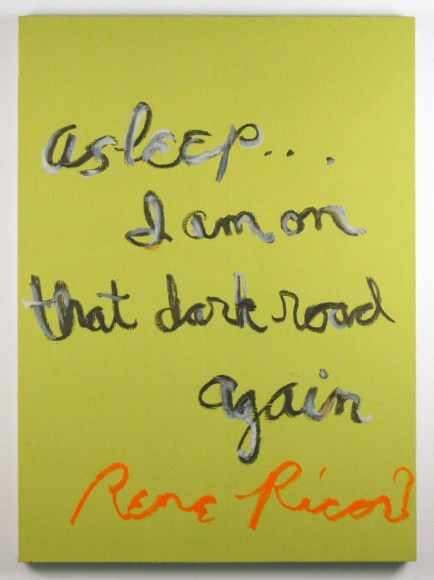 asleep...
I am on
that dark road
again
Rene Ricard